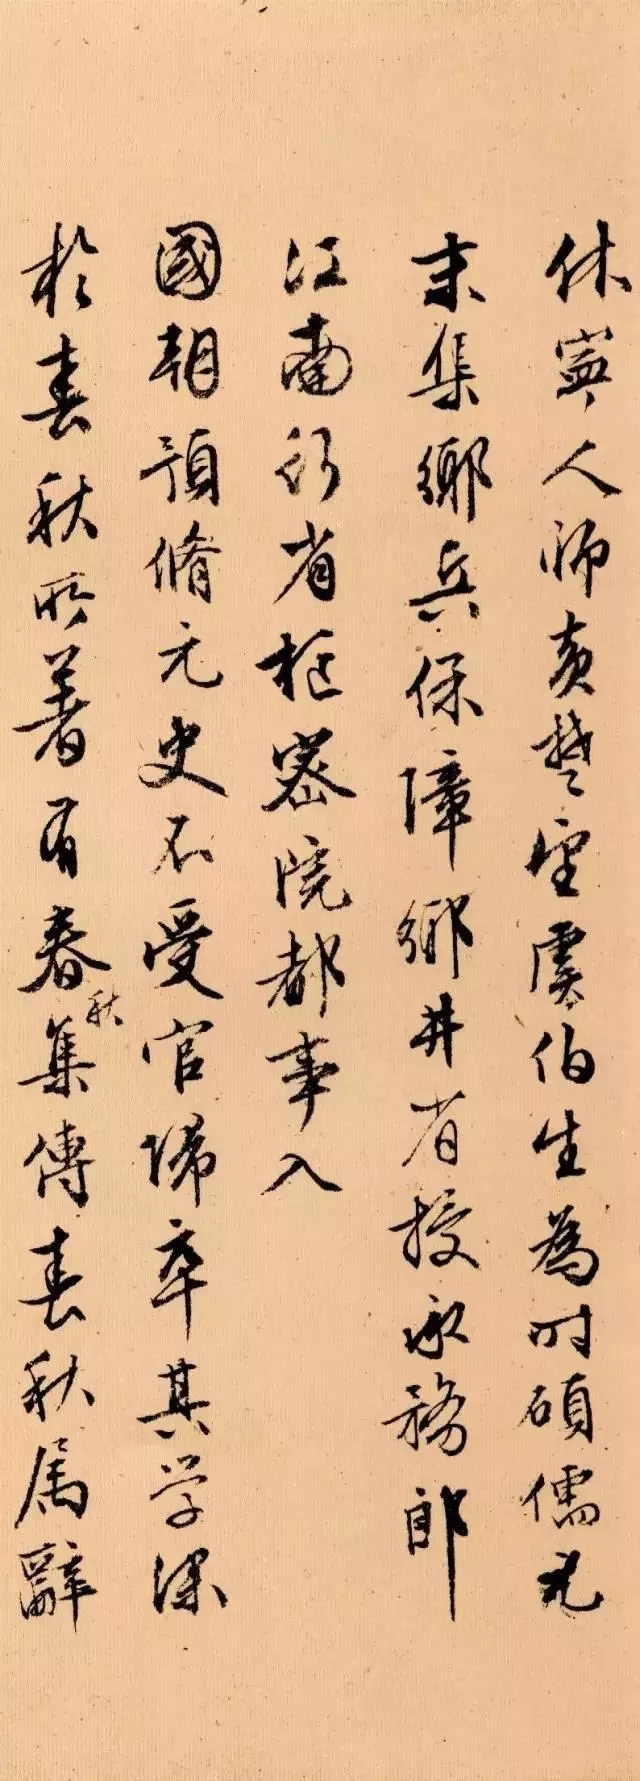 休寧人師黄楚望虞伯生為時碩儒元
末集鄉兵保障鄉井省授承務郎
江南行省樞密院都事入
國朝預脩元史不受官歸卒其学深
於春秋所著有春秋集傳春秋属辭